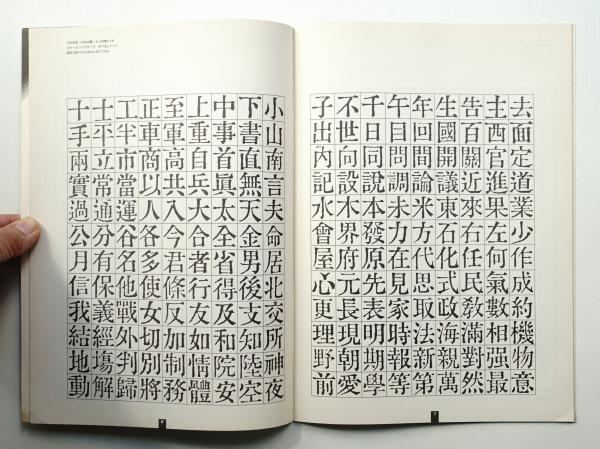 去面定道業少作成約機物意
主西官進果左何氣數相强最
告百關近來右任民敎滿對然
生國開議東石化式政海親萬
年回間論米方代思取法新第
午目問調未力在見家時報等
千日同說本發原先表明期學
不世向設木界府元長現朝愛
子出內記水會屋心更理野前
小山南言夫命居北交所神夜
下書直無天金男後文知陸空
中事首眞太全省得及和院安
上重自兵大合者行友如情體
至軍高共入今君條反加制務
正車商以人各多使女切別將
工半市當運谷名他戰外判歸
士平立常通分有保義經場解
十手兩實過公月信我結地動